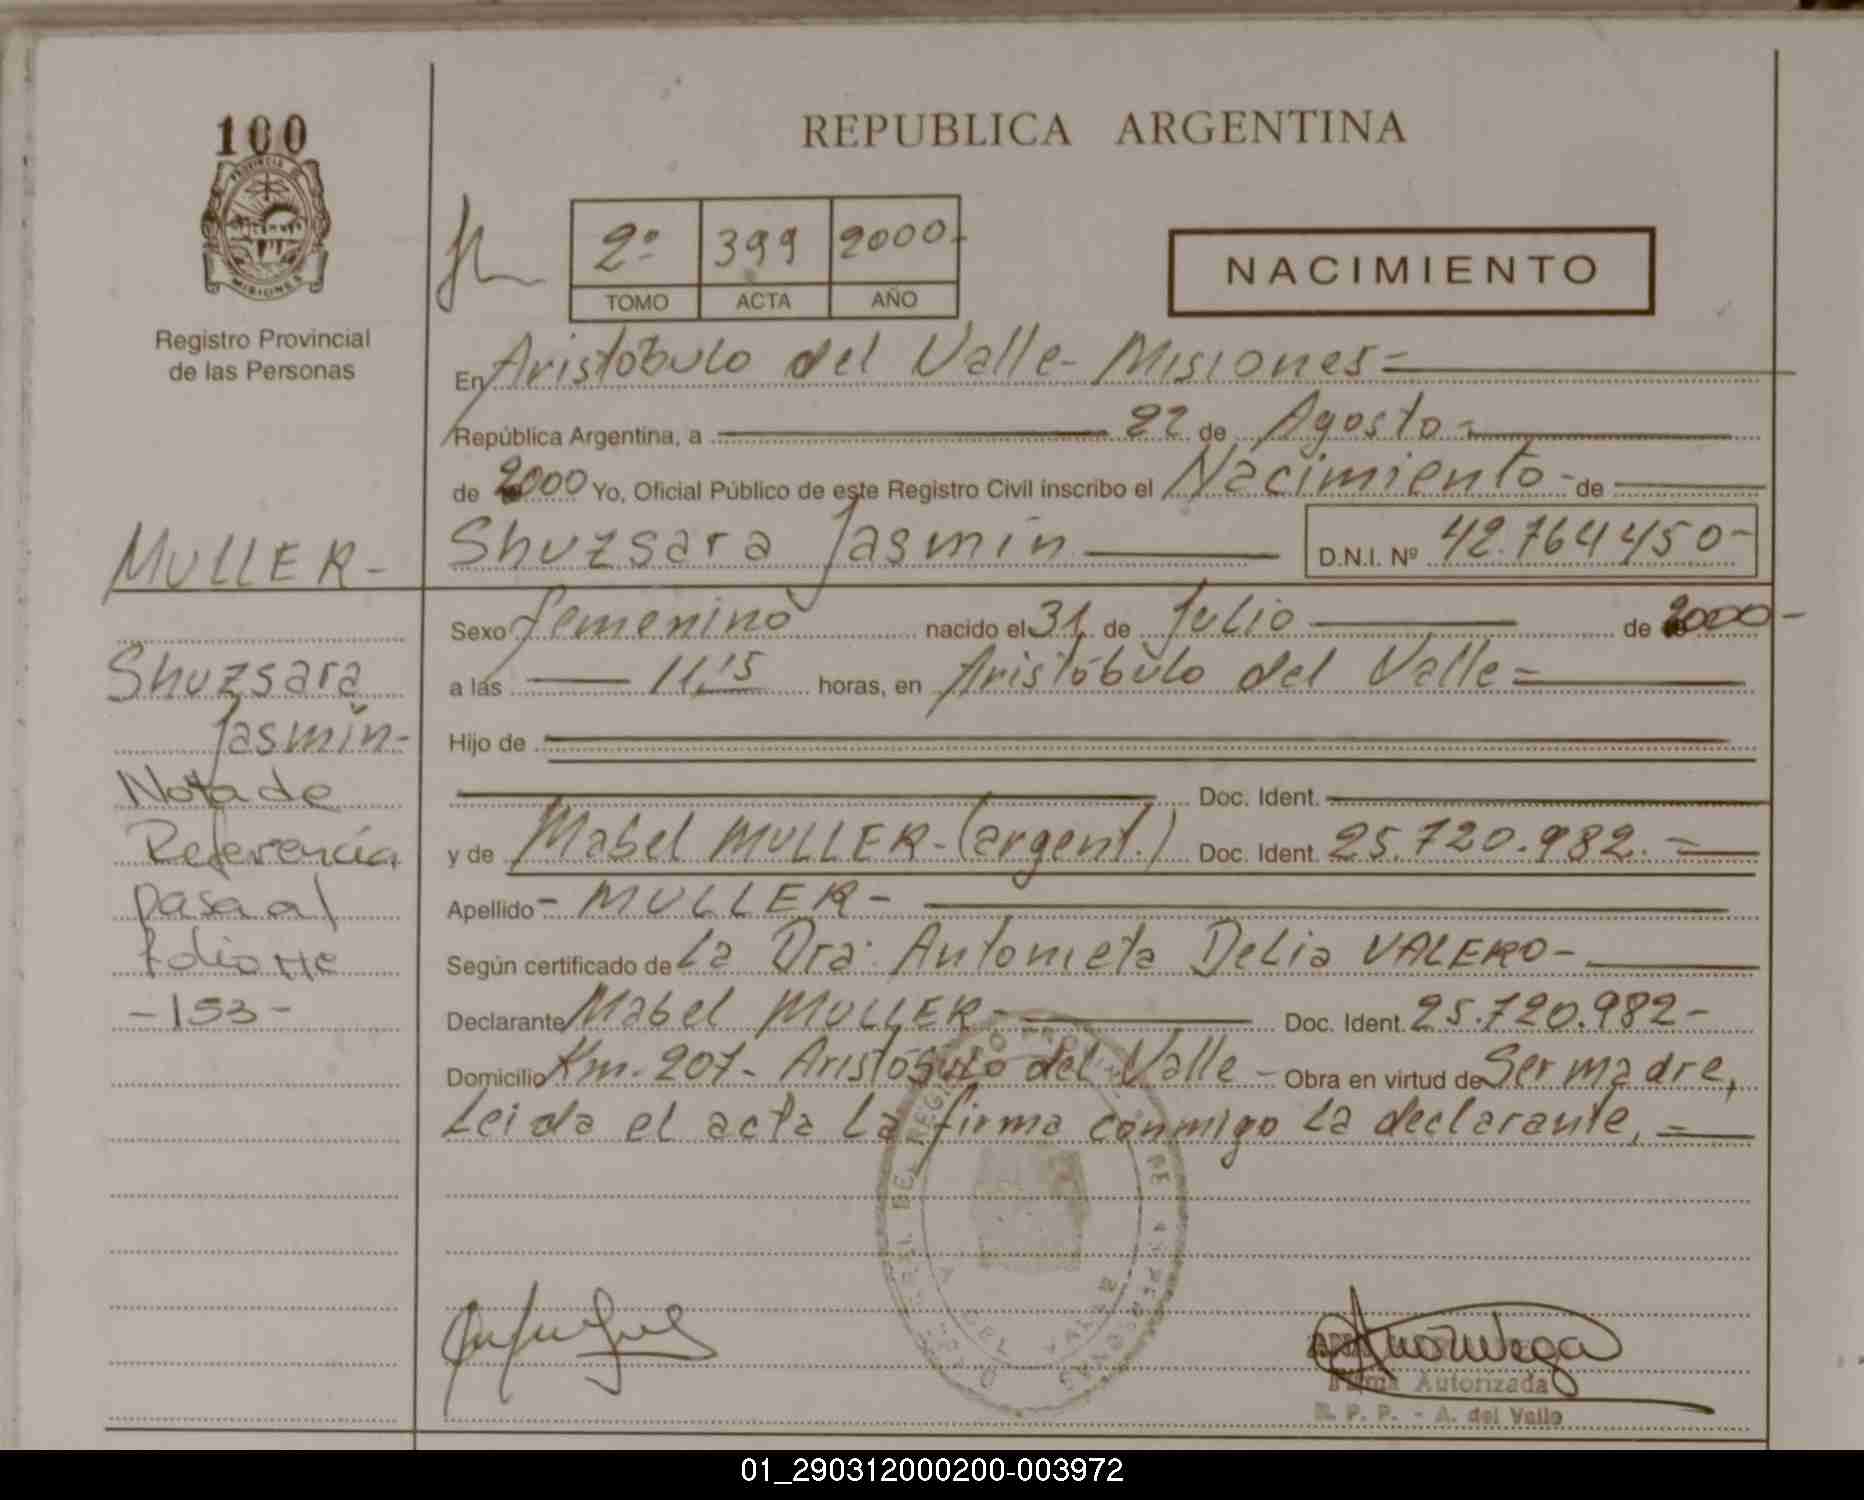 100
PROVINCIA DE
MISIONES
Registro Provincial
de las Personas
REPUBLICA ARGENTINA
2º 399 2000-
TOMO ACTA AÑO
NACIMIENTO
En Aristóbulo del Valle- Misiones=
República Argentina, a 22 de Agosto-
de 2000 Yo, Oficial Público de este Registro Civil inscribo el Nacimiento- de
Shuzsara Jasmin D.N.I. Nº 42.764450-
MULLER-
Shuzsara
Jasmin-
Nota de
Referencia
pasa al
folio Nº
-153-
Sexo femenino nacido el 31 de Julio de 2000-
a las 11,15 horas, en Aristóbulo del Valle=
Hijo de
Doc. Ident.
y de Mabel MULLER-(argent.) Doc. Ident. 25.720.982.=
Apellido- MULLER-
Según certificado de La Dra: Antonieta Delia VALERO-
Declarante Mabel MULLER- Doc. Ident. 25.720.982-
Domicilio Km. 207- Aristóbulo del Valle- Obra en virtud de Ser madre,
Leida el acta la firma conmigo la declarante,=
Firma Autorizada
R. P. P. - A. del Valle
01_290312000200-003972